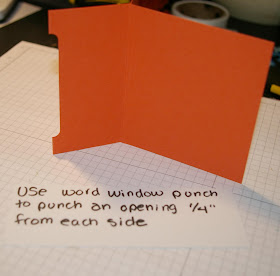 Use word window punch
to punch an opening 1/4"
from each side